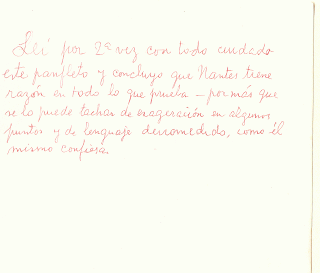 Leí por 2ª vez con todo cuidado
este panfleto y concluyo que Nantes tiene
razón en todo lo que prueba – por más que
se lo puede tachar de exageración en algunos
puntos y de lenguaje descomedido, como él
mismo confiesa.